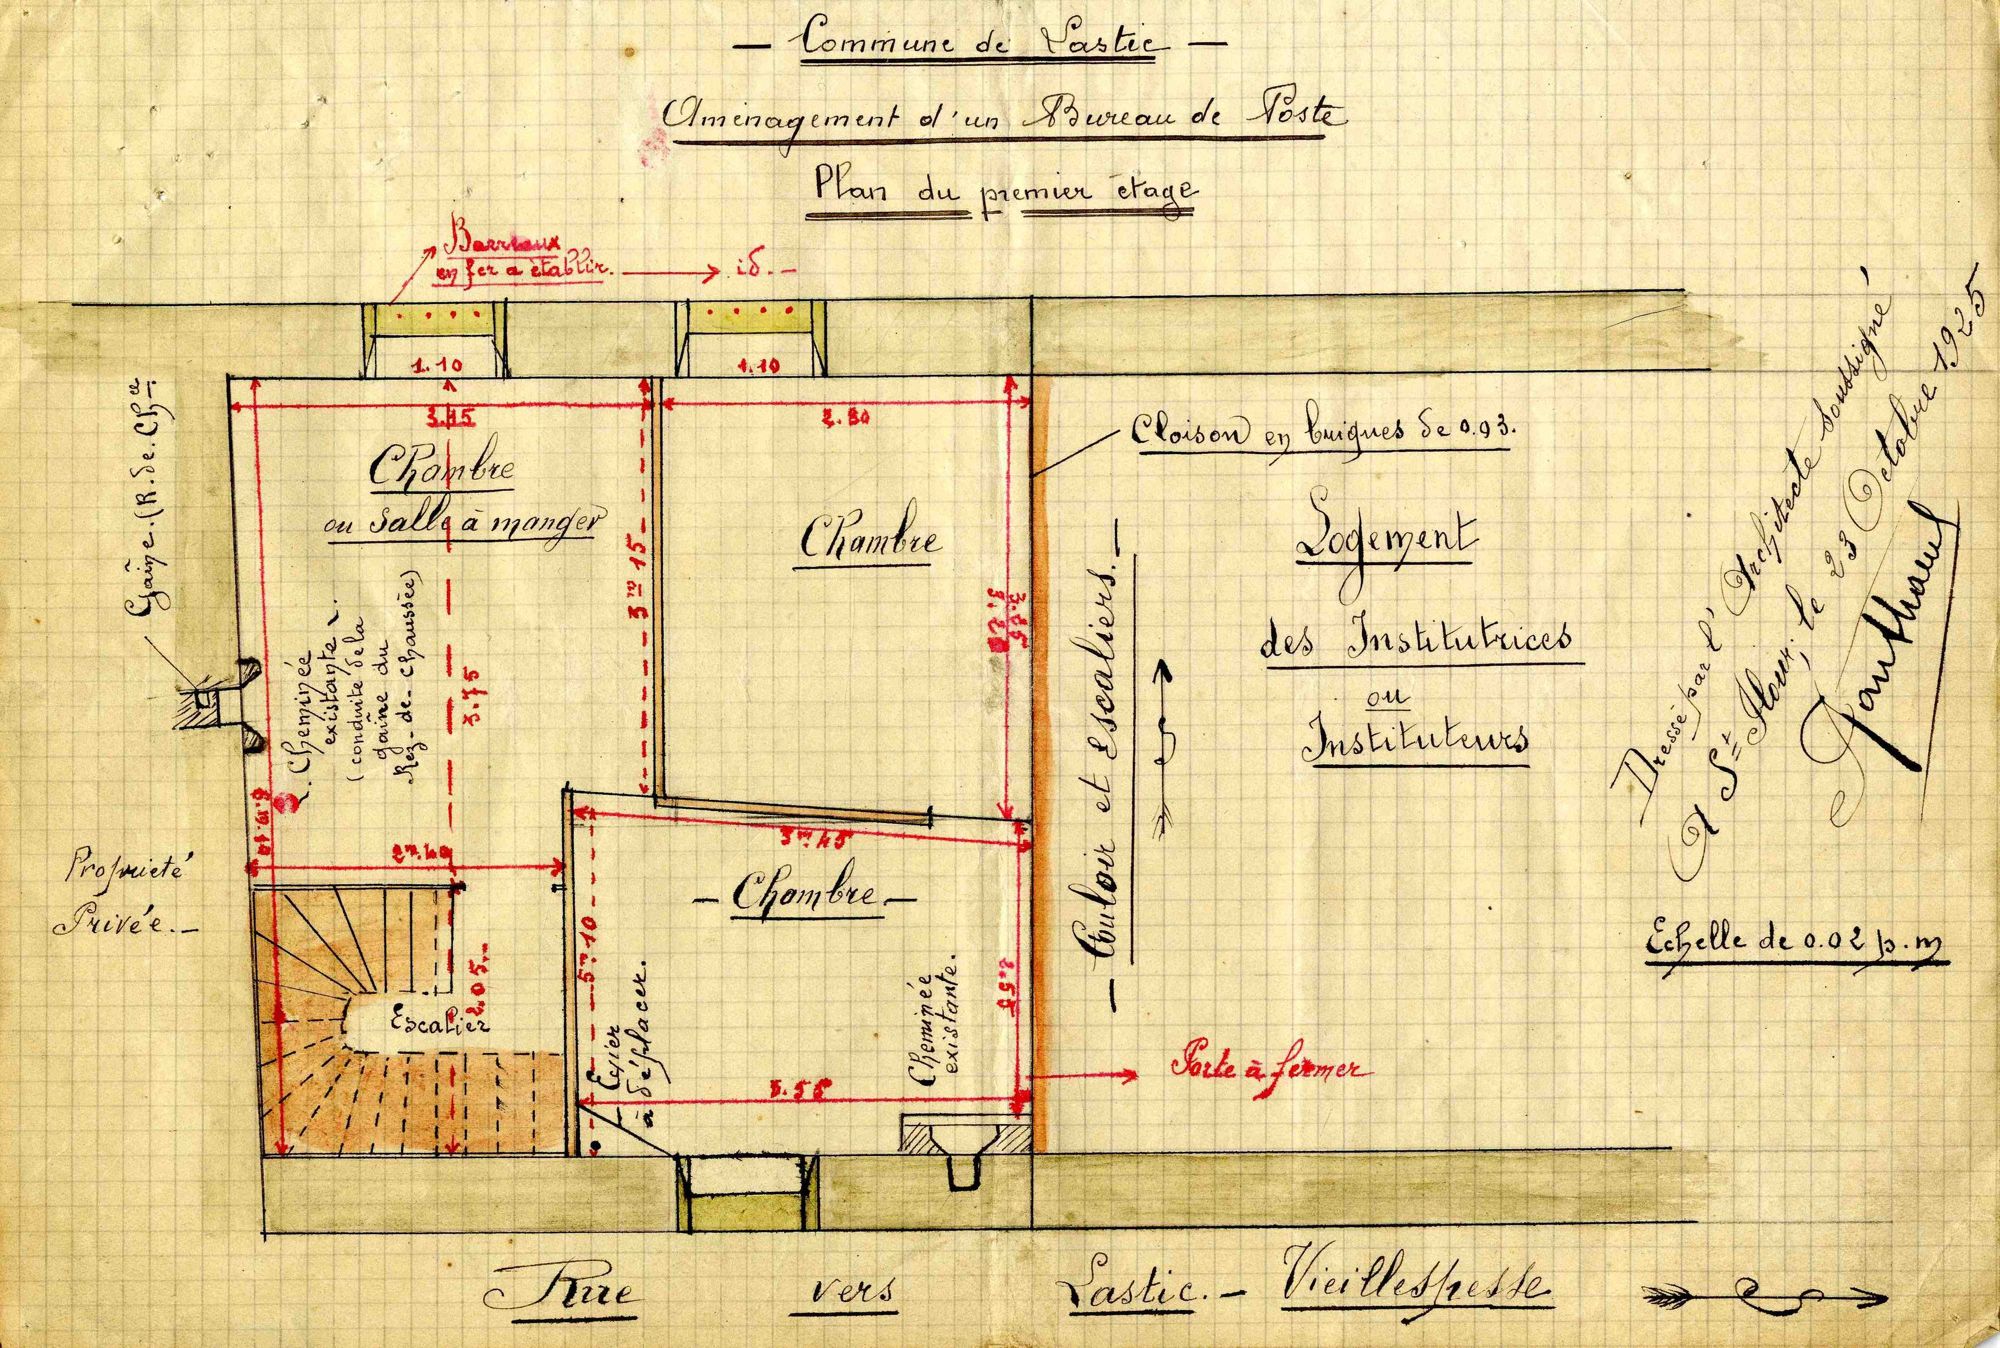 — Commune de Lastic —
Aménagement d'un Bureau de Poste
Plan du premier étage
Barreaux
en fer a établir. id. -
1.10
1.10
3.15
2.80
Gaîne. (R. de. Ch.ée
Chambre
ou Salle à manger
3m15
Chambre
Cloison en briques de 0.03.
Logement
des Institutrices
ou
Instituteurs
Cheminée
existante
(conduite de la
gaîne du
Rez-de-Chaussée)
3.75
— Couloir et Escaliers. —
Propriété
Privée. -
2m.40
3m45
- Chambre -
2.05.-
Escalier
3m10
Evier
à déplacer.
Cheminée
existante.
2.55
3.55
Porte à fermer
Dressé par l'Architecte soussigné
A St Flour, le 23 Octobre 1925
Echelle de 0.02 p.m
Rue vers Lastic. - Vieillespesse